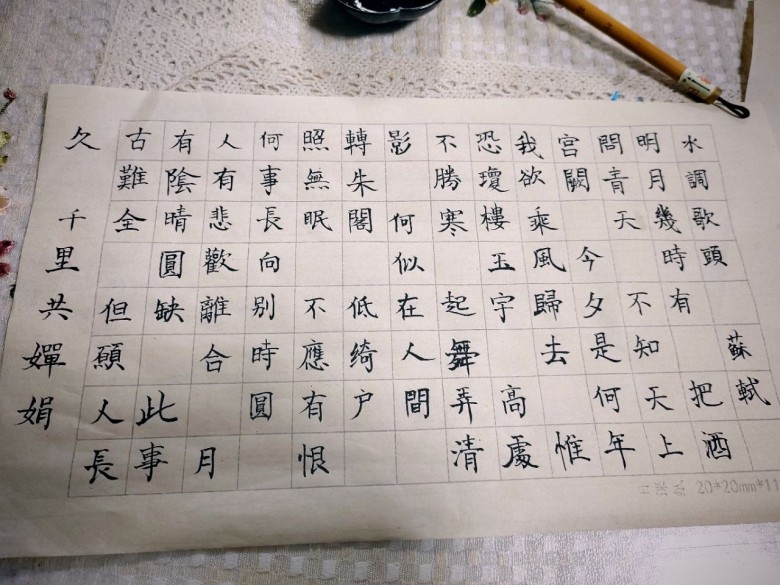 水調歌頭 蘇軾
明月幾時有 把酒
問青天 不知天上
宮闕 今夕是何年
我欲乘風歸去 惟
恐瓊樓玉宇 高處
不勝寒 起舞弄清
影 何似在人間
轉朱閣 低綺户
照無眠 不應有恨
何事長向別時圓
人有悲歡離合 月
有陰晴圓缺 此事
古難全 但願人長
久 千里共嬋娟
20*20mm*11